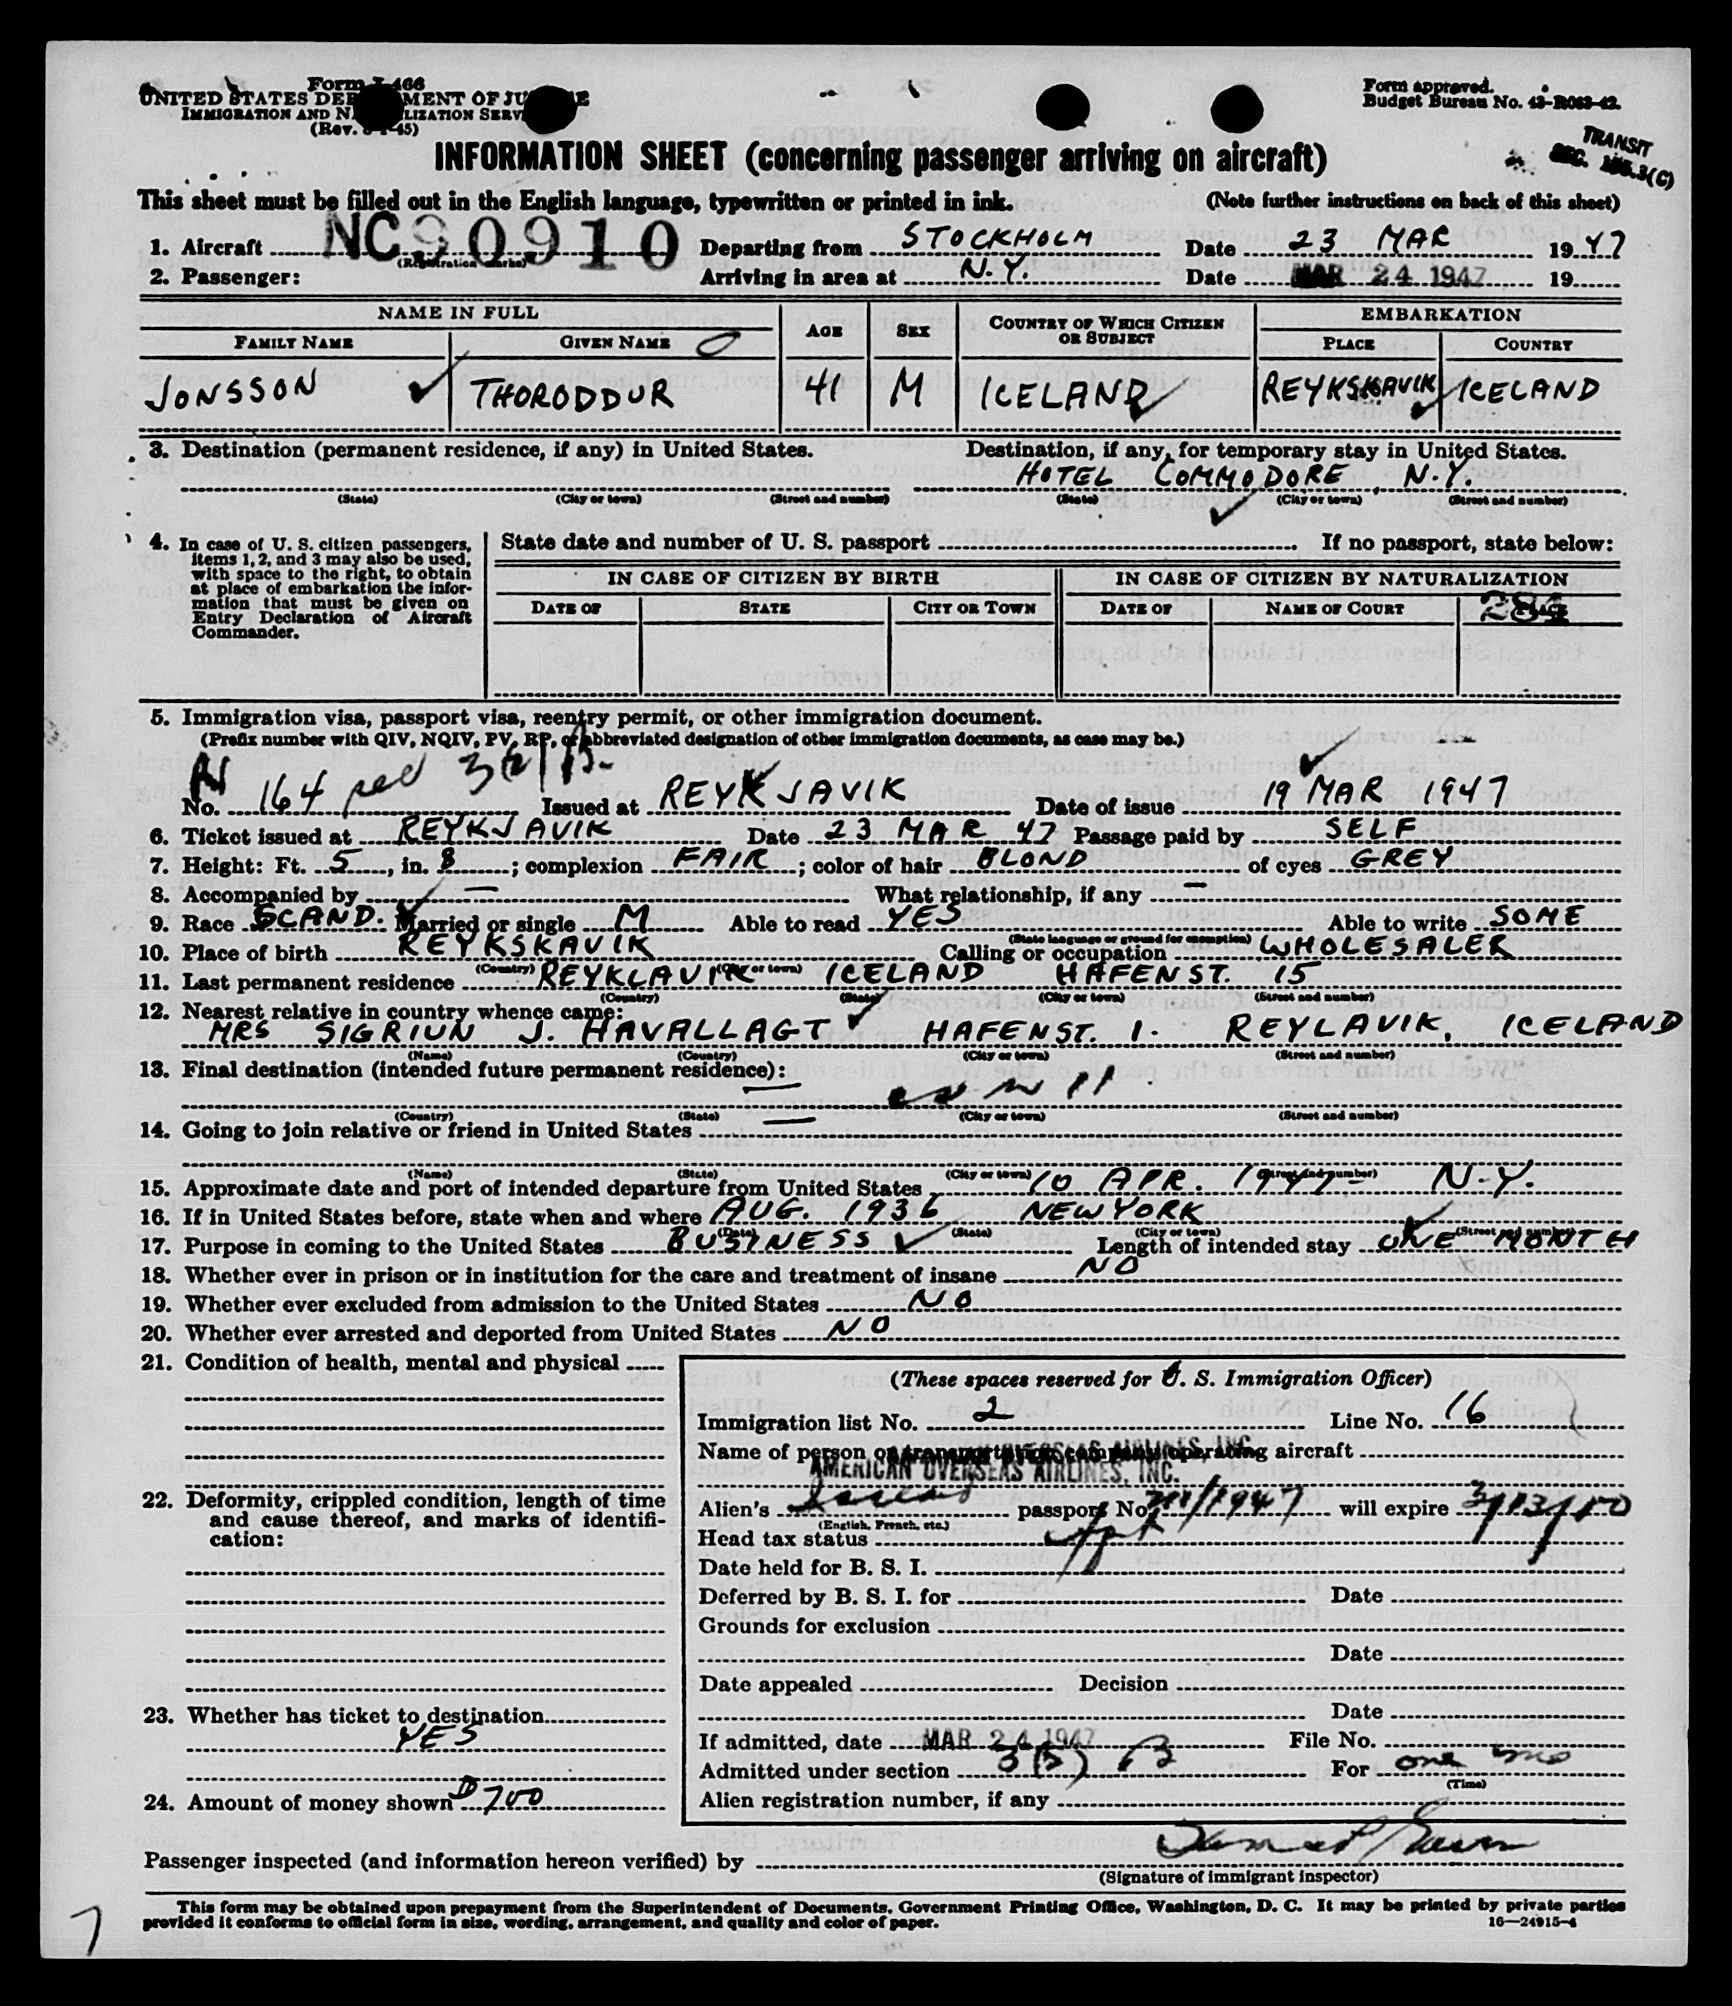 Form I-466
UNITED STATES DEPARTMENT OF JUSTICE
IMMIGRATION AND NATURALIZATION SERVICE
(Rev. 45)
Form approved.
Budget Bureau No. 43-R063-42.
TRANSIT
SEC. 3(C)
INFORMATION SHEET (concerning passenger arriving on aircraft)
This sheet must be filled out in the English language, typewritten or printed in ink. (Note further instructions on back of this sheet)
1. Aircraft NC90910 (Registration marks) Departing from STOCKHOLM Date 23 MAR 1947
2. Passenger: Arriving in area at N.Y. Date MAR 24 1947 19
NAME IN FULL AGE SEX COUNTRY OF WHICH CITIZEN OR SUBJECT EMBARKATION
FAMILY NAME GIVEN NAME PLACE COUNTRY
JONSSON THORODDUR 41 M ICELAND REYKSKAVIK ICELAND
3. Destination (permanent residence, if any) in United States. Destination, if any, for temporary stay in United States.
HOTEL COMMODORE, N.Y.
(State) (City or town) (Street and number) (State) (City or town) (Street and number)
4. In case of U. S. citizen passengers,
items 1, 2, and 3 may also be used,
with space to the right, to obtain
at place of embarkation the infor-
mation that must be given on
Entry Declaration of Aircraft
Commander.
State date and number of U. S. passport If no passport, state below:
IN CASE OF CITIZEN BY BIRTH IN CASE OF CITIZEN BY NATURALIZATION
DATE OF STATE CITY OR TOWN DATE OF NAME OF COURT PLACE
284
5. Immigration visa, passport visa, reentry permit, or other immigration document.
(Prefix number with QIV, NQIV, PV, RP, or abbreviated designation of other immigration documents, as case may be.)
No. 164 Issued at REYKJAVIK Date of issue 19 MAR 1947
6. Ticket issued at REYKJAVIK Date 23 MAR 47 Passage paid by SELF
7. Height: Ft. 5, in. 8; complexion FAIR; color of hair BLOND of eyes GREY
8. Accompanied by — What relationship, if any —
9. Race SCAND. Married or single M Able to read YES Able to write SOME
(State language or ground for exemption)
10. Place of birth REYKSKAVIK Calling or occupation WHOLESALER
(Country) (City or town)
11. Last permanent residence REYKLAVIK ICELAND HAFENST. 15
(Country) (State) (City or town) (Street and number)
12. Nearest relative in country whence came:
MRS SIGRIUN J. HAVALLAGT HAFENST. 1. REYLAVIK, ICELAND
(Name) (Country) (City or town) (Street and number)
13. Final destination (intended future permanent residence): —
(Country) (State) (City or town) (Street and number)
14. Going to join relative or friend in United States —
(Name) (State) (City or town) (Street and number)
15. Approximate date and port of intended departure from United States 10 APR. 1947 — N.Y.
16. If in United States before, state when and where AUG. 1936 NEW YORK
(Date) (State) (City or town) (Street and number)
17. Purpose in coming to the United States BUSINESS Length of intended stay ONE MONTH
18. Whether ever in prison or in institution for the care and treatment of insane NO
19. Whether ever excluded from admission to the United States NO
20. Whether ever arrested and deported from United States NO
21. Condition of health, mental and physical
22. Deformity, crippled condition, length of time
and cause thereof, and marks of identifi-
cation:
23. Whether has ticket to destination
YES
24. Amount of money shown $700
(These spaces reserved for U. S. Immigration Officer)
Immigration list No. 2 Line No. 16
Name of person or transportation company operating aircraft
AMERICAN OVERSEAS AIRLINES, INC.
AMERICAN OVERSEAS AIRLINES, INC.
Alien's Iceland passport No. /1947 will expire 3/13/50
(English, French, etc.)
Head tax status
Date held for B. S. I.
Deferred by B. S. I. for Date
Grounds for exclusion
Date
Date appealed Decision
Date
If admitted, date MAR 24 1947 File No.
Admitted under section 3(2) B For one mo
(Time)
Alien registration number, if any
Passenger inspected (and information hereon verified) by
(Signature of immigrant inspector)
This form may be obtained upon prepayment from the Superintendent of Documents, Government Printing Office, Washington, D. C. It may be printed by private parties
provided it conforms to official form in size, wording, arrangement, and quality and color of paper. 16—24915-4
7